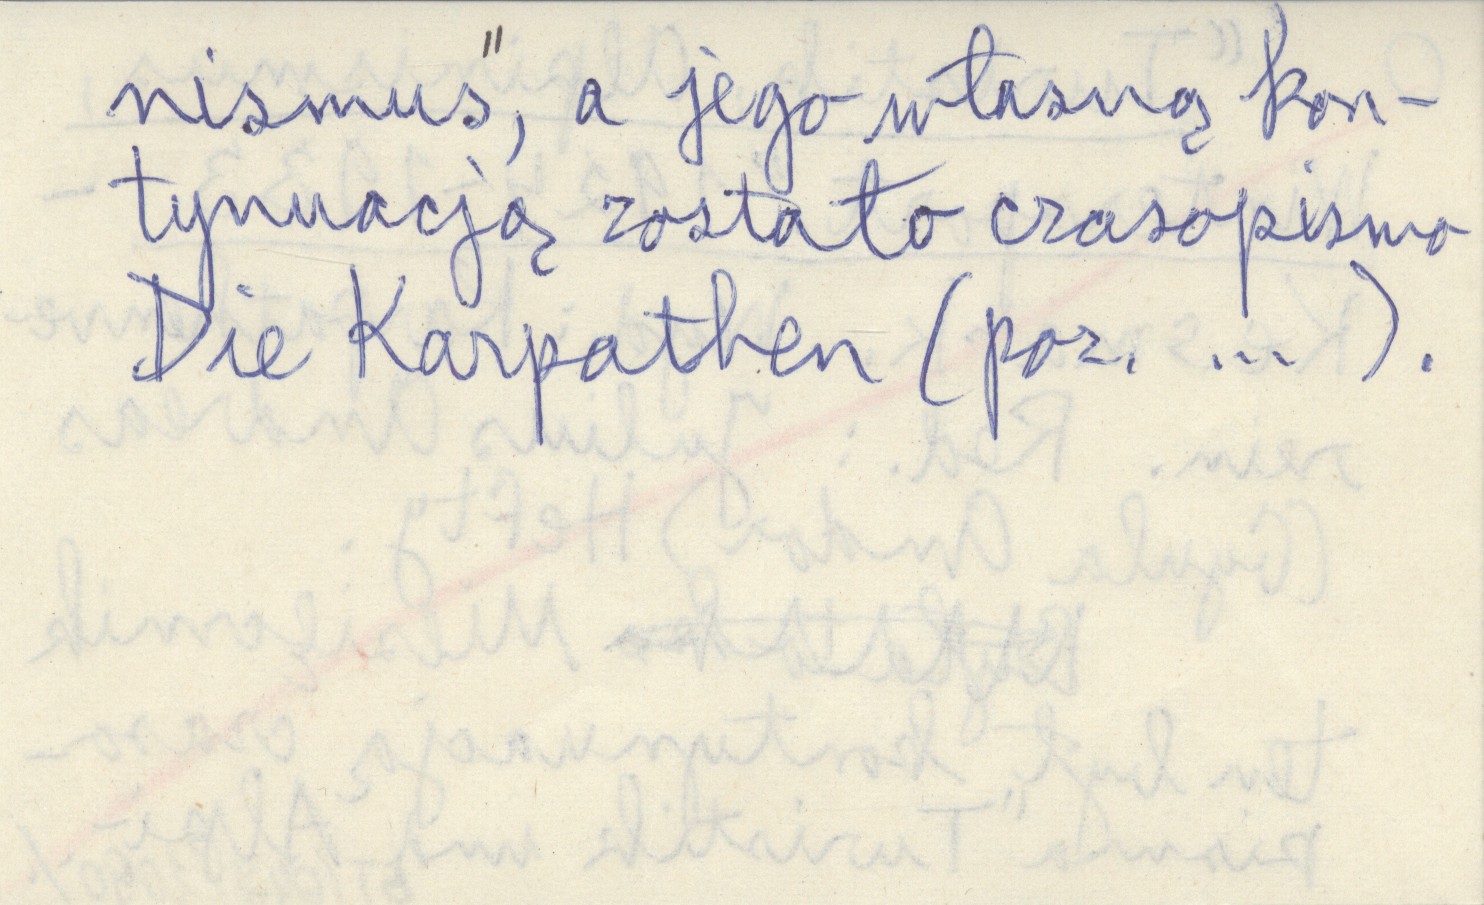 nismus", a jego własną kon-
tynuacją zostało czasopismo
Die Karpathen (poz. ... ).